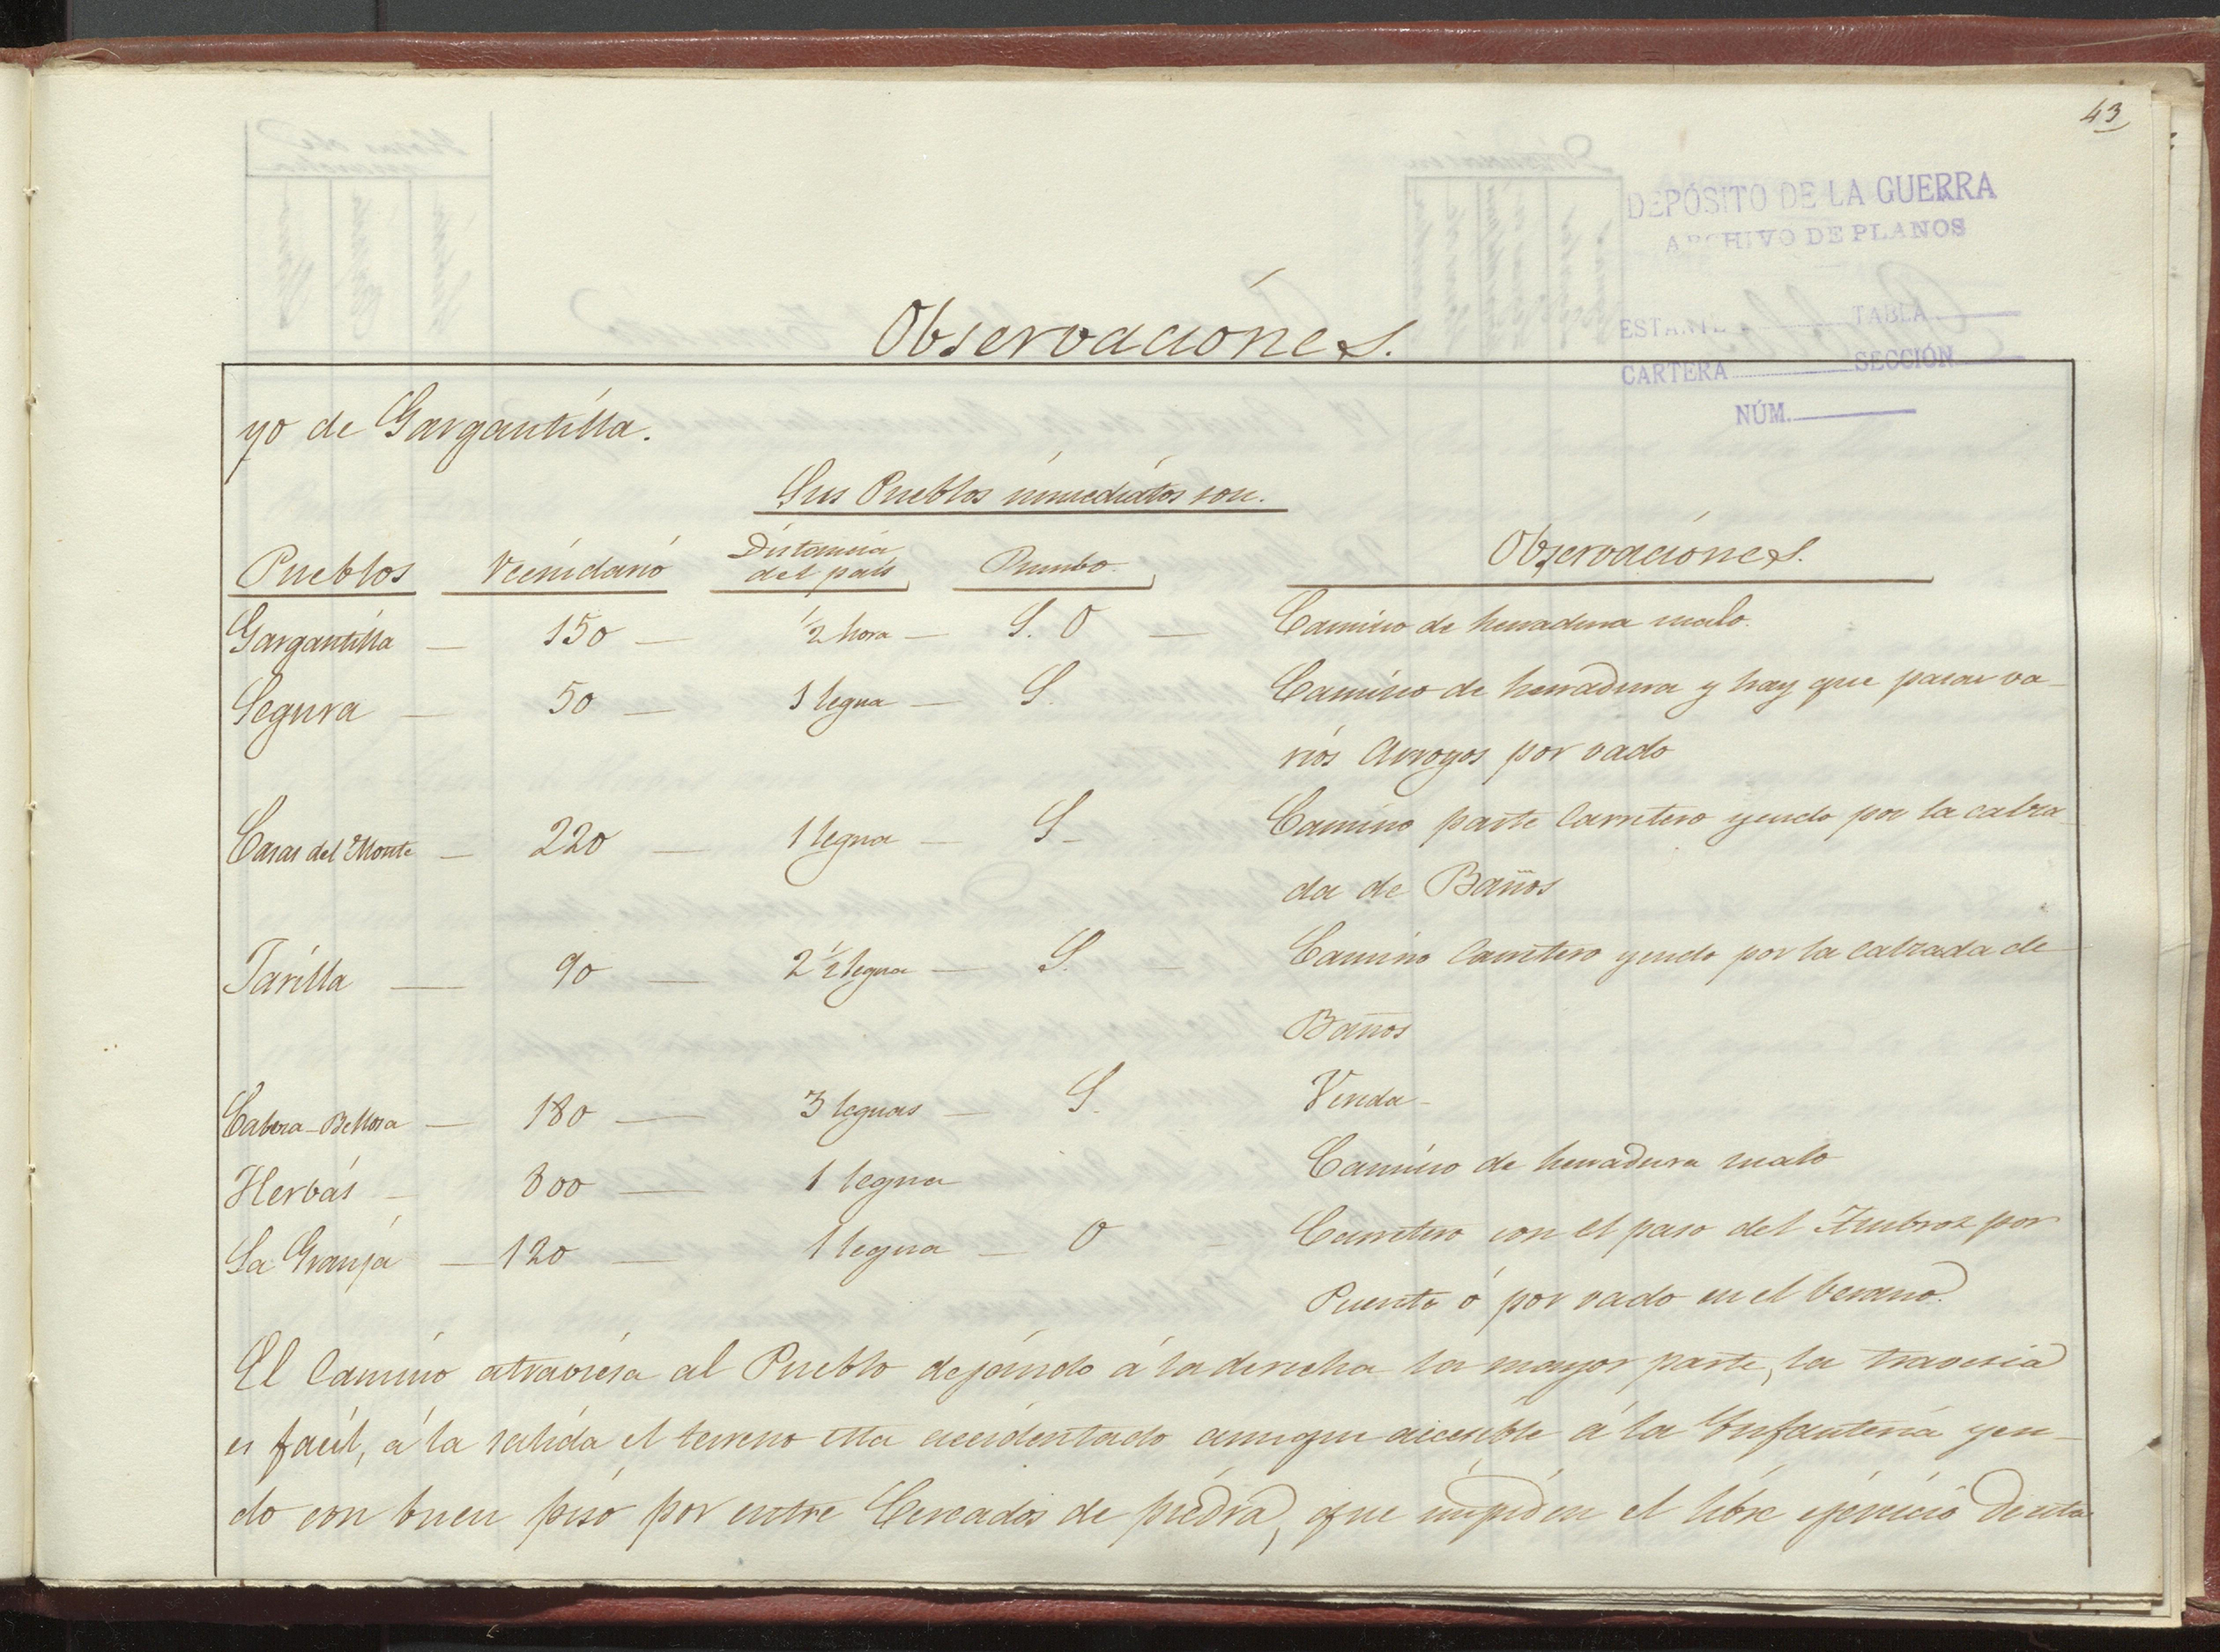 43
DEPÓSITO DE LA GUERRA
ARCHIVO DE PLANOS
ESTANTE TABLA
CARTERA SECCIÓN
NÚM.
Observaciónes.
yo de Gargantilla.
Sus Pueblos inmediatos son.
Pueblos Vecindario Distancia del pais Rumbo. Observaciónes.
Gargantilla — 150 — 1/2 hora — S. O — Camino de herradura malo.
Segura — 50 — 1 legua — S. Camino de herradura y hay que pasar va-
rios Arroyos por vado
Casas del Monte — 220 — 1 legua — S- Camino parte Carretero yendo por la calza
da de Baños
Jarilla — 90 — 2 1/2 legua — S. — Camino Carretero yendo por la calzada de
Baños
Cabeza-Bellosa — 180 — 3 leguas — S. Vereda-
Herbás — 800 — 1 legua Camino de herradura malo
La Granja — 120 — 1 legua — O — Carretero con el paso del Ambroz por
Puente ó por vado en el berano.
El Camino atraviesa al Pueblo dejando á la derecha la mayor parte, la travesia
es facil, á la salida el terreno esta accidentado aunque accesible á la Infanteria yen-
do con buen piso por entre Cercados de piedra, que impiden el libre ejercicio de esta